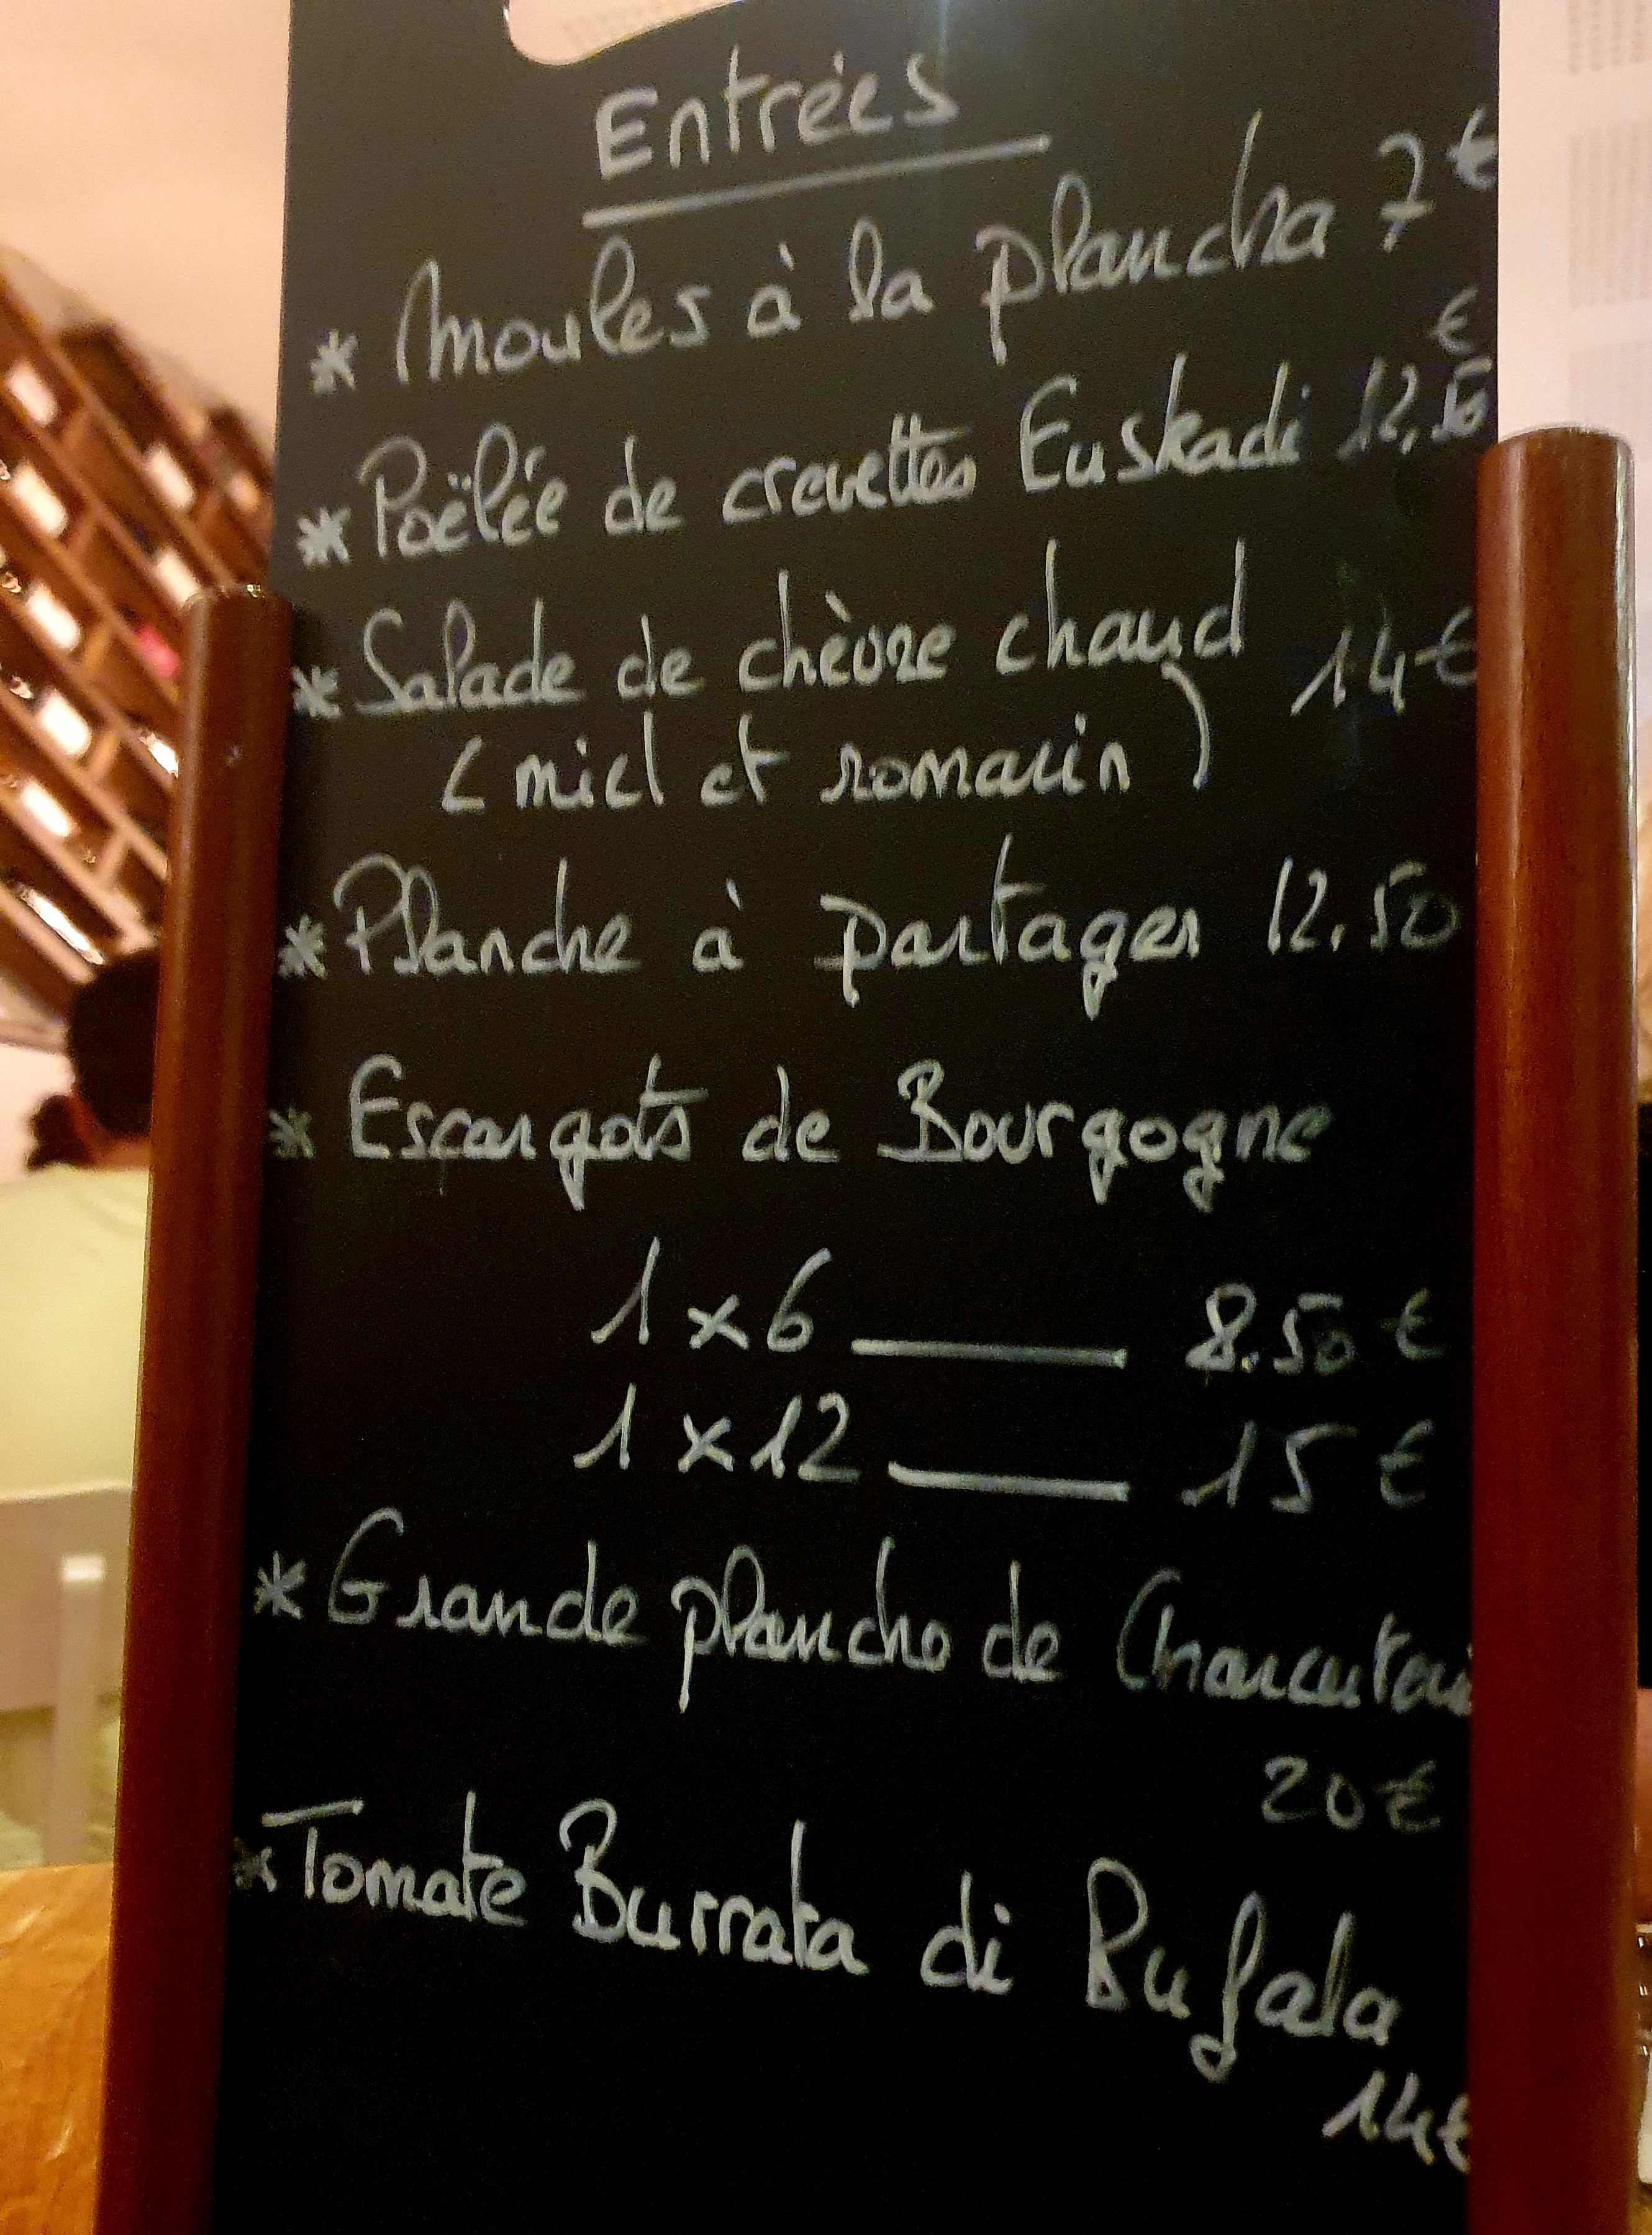 Entrées
* Moules à la plancha 7€
* Poëlée de crevettes Euskadi 12,50 €
* Salade de chèvre chaud 14€
(miel et romarin)
* Planche à partager 12.50
* Escargots de Bourgogne
1 x 6 — 8.50 €
1 x 12 — 15 €
* Grande planche de Charcuteri
20€
* Tomate Burrata di Bufala
14€